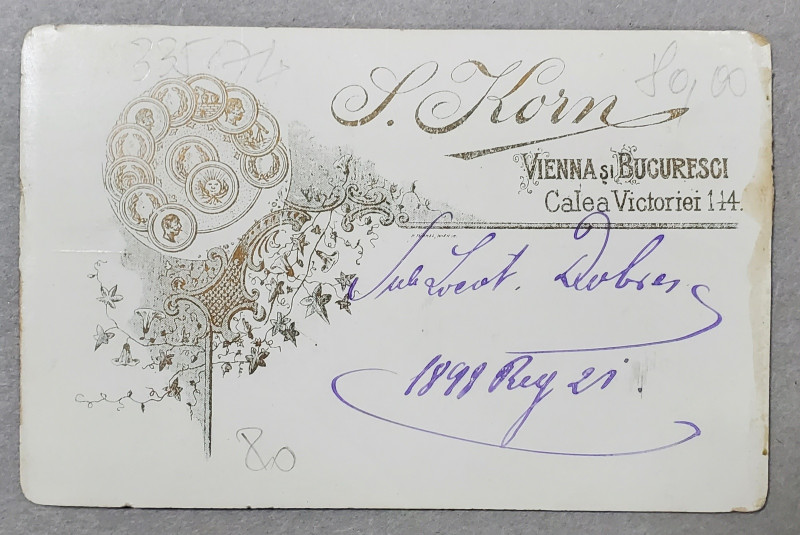 33574
80,00
S. Korn
VIENNA ȘI BUCURESCI
Calea Victoriei 114.
SubLocot. Dobres
1898 Reg 21
80